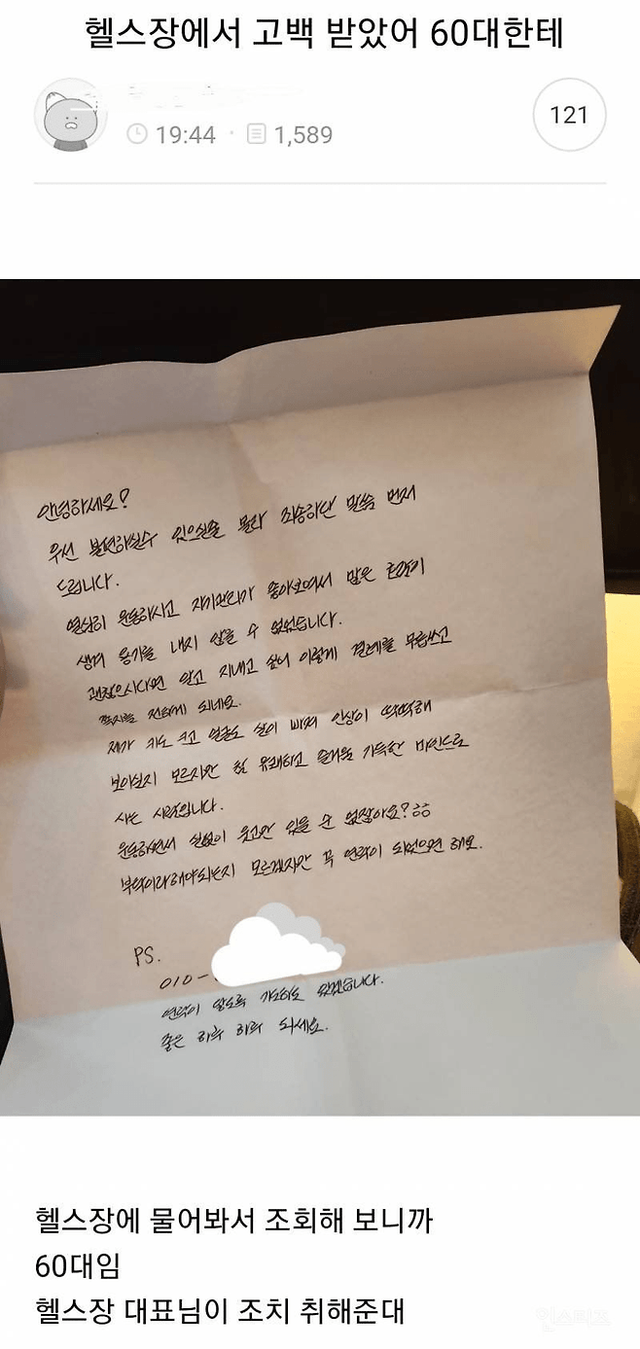 헬스장에서 고백 받았어 60대한테
19:44 · 1,589
121
안녕하세요?
우선 불편하실수 있으실줄 몰라 죄송하단 말씀 먼저
드립니다.
열심히 운동하시고 자기관리가 좋아보여서 많은 호감이
생겨 용기를 내지 않을 수 없었습니다.
괜찮으시다면 알고 지내고 싶어 이렇게 결례를 무릅쓰고
쪽지를 전하게 되네요.
제가 키도 크고 얼굴도 살이 빠져 인상이 딱딱해
보이실지 모르지만 참 유쾌하고 즐거움 가득한 마인드로
사는 사람입니다.
운동하면서 실없이 웃고만 있을 순 없잖아요?ㅎㅎ
부탁이라해야되는지 모르겠지만 꼭 연락이 되었으면 해요.
PS.
010-
연락이 닿도록 기도해도 되겠습니다.
좋은 하루 하루 되세요.
헬스장에 물어봐서 조회해 보니까
60대임
헬스장 대표님이 조치 취해준대
인스티즈